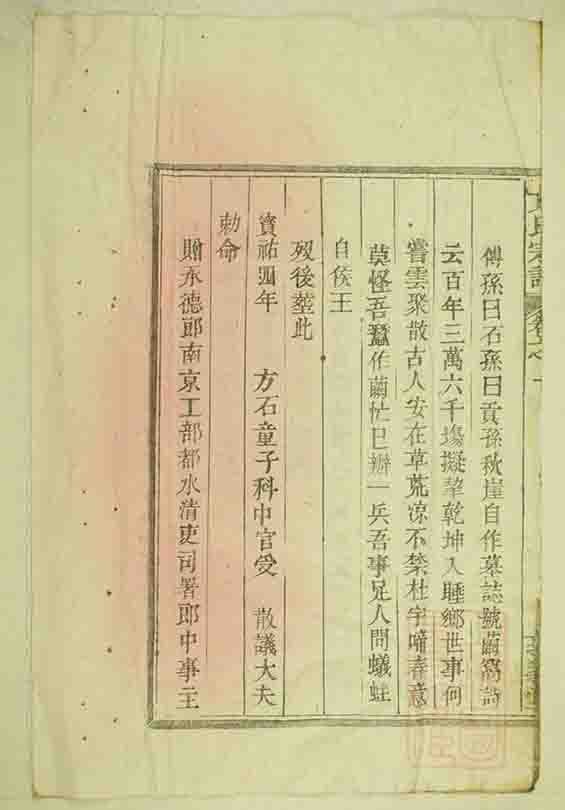 傅孫曰石孫曰貢孫秋崖自作墓誌號繭窩詩
云百年三萬六千塲擬挈乾坤入睡鄉世事何
甞雲聚散古人安在草荒凉不禁杜宇啼春意
莫怪吾蠶作繭忙已辦一兵吾事足人間蟻蛀
自侯王
歿後塟此
寶祐四年 方石童子科中官受 散議大夫
勅命
贈永德郎南京工部都水清吏司署郎中事主
氏宗譜